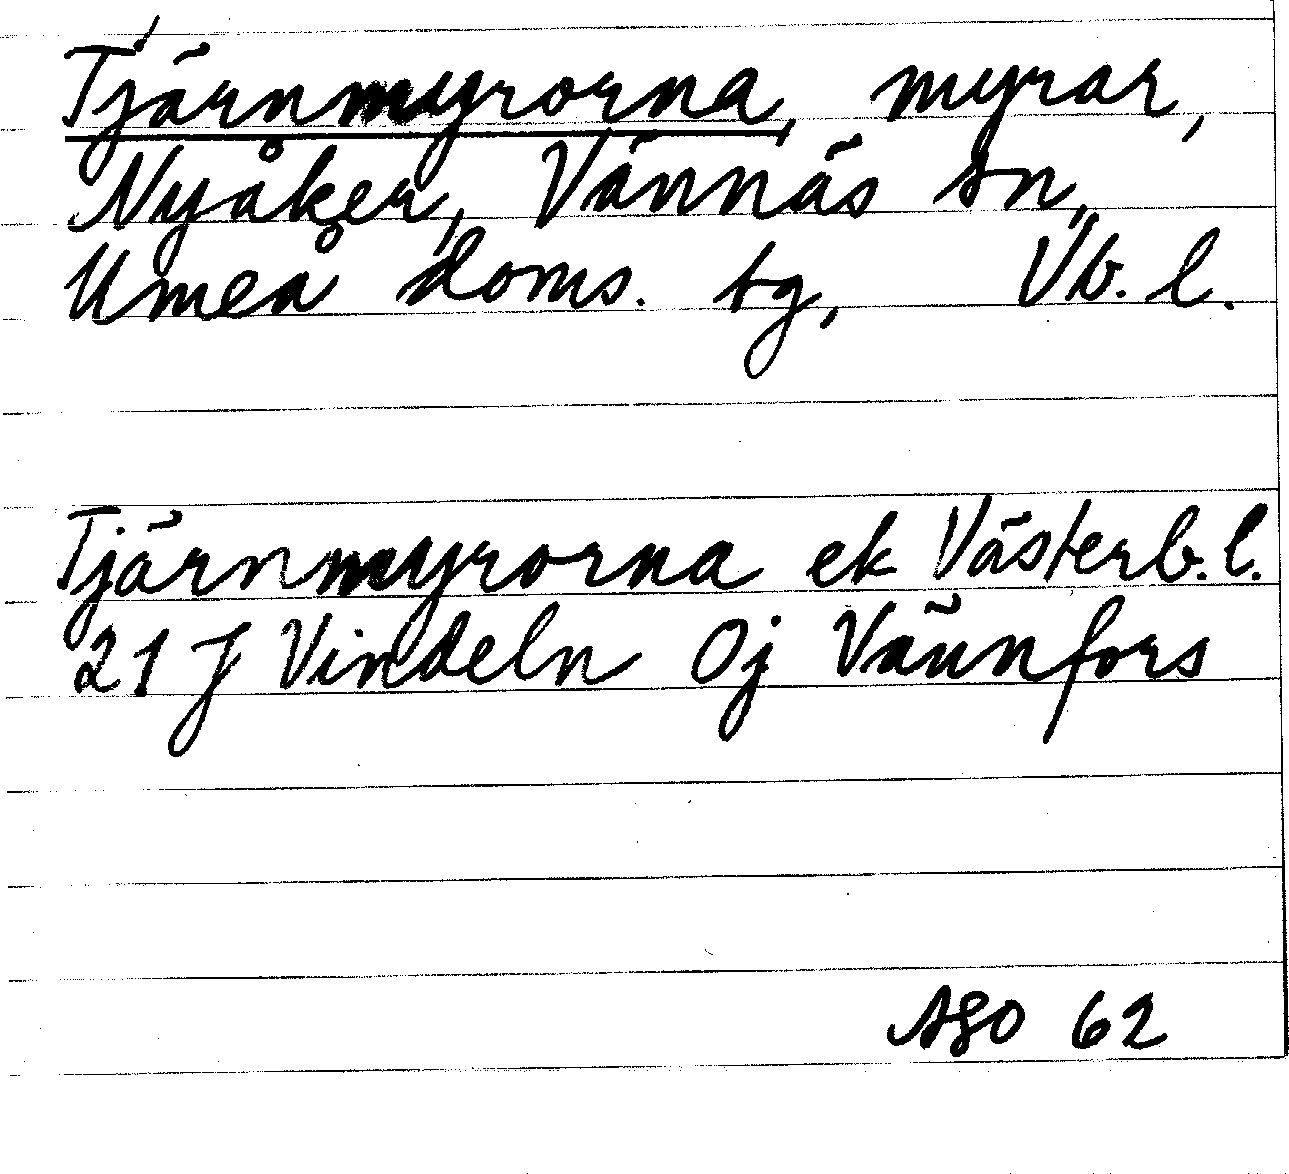 Tjärnmyrorna, myrar,
Nyåker, Vännäs sn,
Umeå doms. sg, Vb. l.
Tjärnmyrorna ek Västerb. l.
21 J Vindeln Oj Vännfors
ASO 62